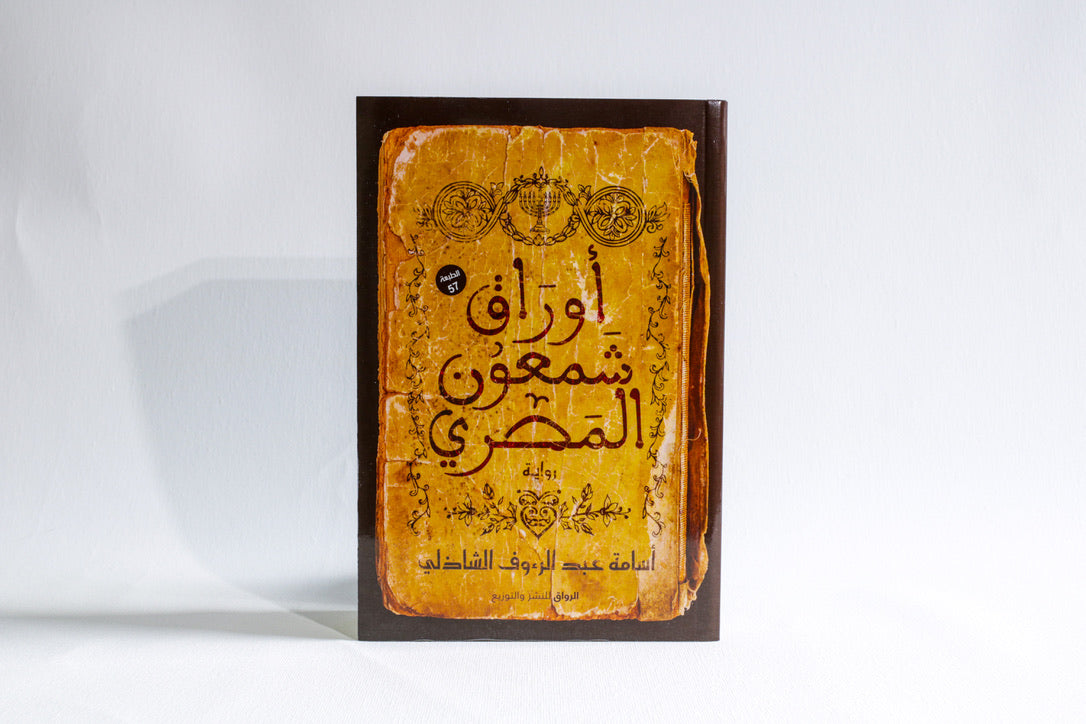 الطبعة
57
أَورَاق
شَمعُون
المَصْري
رواية
أسامة عبد الرءوف الشاذلي
الرواق للنشر والتوزيع